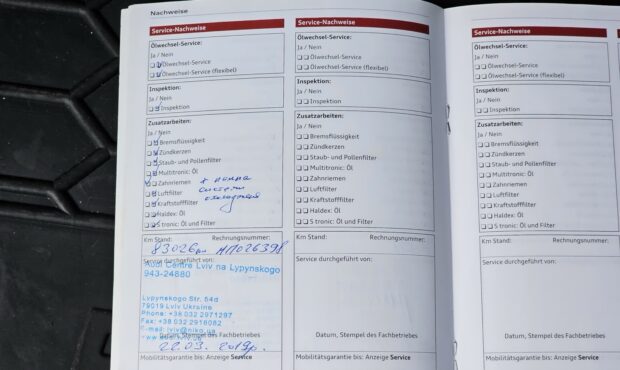 Nachweise
Service-Nachweise
Ölwechsel-Service:
Ja / Nein
Ölwechsel-Service
Ölwechsel-Service (flexibel)
Inspektion:
Ja / Nein
Inspektion
Zusatzarbeiten:
Ja / Nein
Bremsflüssigkeit
Zündkerzen
Staub- und Pollenfilter
Multitronic: Öl
Zahnriemen
+ помпа
Luftfilter
система
Kraftstofffilter
охлаждения
Haldex: Öl
S tronic: Öl und Filter
Km Stand: Rechnungsnummer:
83026км АП026398
Service durchgeführt von:
Audi Centre Lviv na Lypynskogo
943-24880
Lypynskogo Str. 54d
79019 Lviv Ukraine
Phone: +38 032 2971297
Fax: +38 032 2918082
E-mail: lviv@niko.ua
Datum, Stempel des Fachbetriebes
22.03. 2019р.
Mobilitätsgarantie bis: Anzeige Service
Service-Nachweise
Ölwechsel-Service:
Ja / Nein
Ölwechsel-Service
Ölwechsel-Service (flexibel)
Inspektion:
Ja / Nein
Inspektion
Zusatzarbeiten:
Ja / Nein
Bremsflüssigkeit
Zündkerzen
Staub- und Pollenfilter
Multitronic: Öl
Zahnriemen
Luftfilter
Kraftstofffilter
Haldex: Öl
S tronic: Öl und Filter
Km Stand: Rechnungsnummer:
Service durchgeführt von:
Datum, Stempel des Fachbetriebes
Mobilitätsgarantie bis: Anzeige Service
Service-Nachweise
Ölwechsel-Service:
Ja / Nein
Ölwechsel-Service
Ölwechsel-Service (flexibel)
Inspektion:
Ja / Nein
Inspektion
Zusatzarbeiten:
Ja / Nein
Bremsflüssigkeit
Zündkerzen
Staub- und Pollenfilter
Multitronic: Öl
Zahnriemen
Luftfilter
Kraftstofffilter
Haldex: Öl
S tronic: Öl und Filter
Km Stand: Rechnungsnummer:
Service durchgeführt von:
Datum, Stempel des Fachbetriebes
Mobilitätsgarantie bis: Anzeige Service